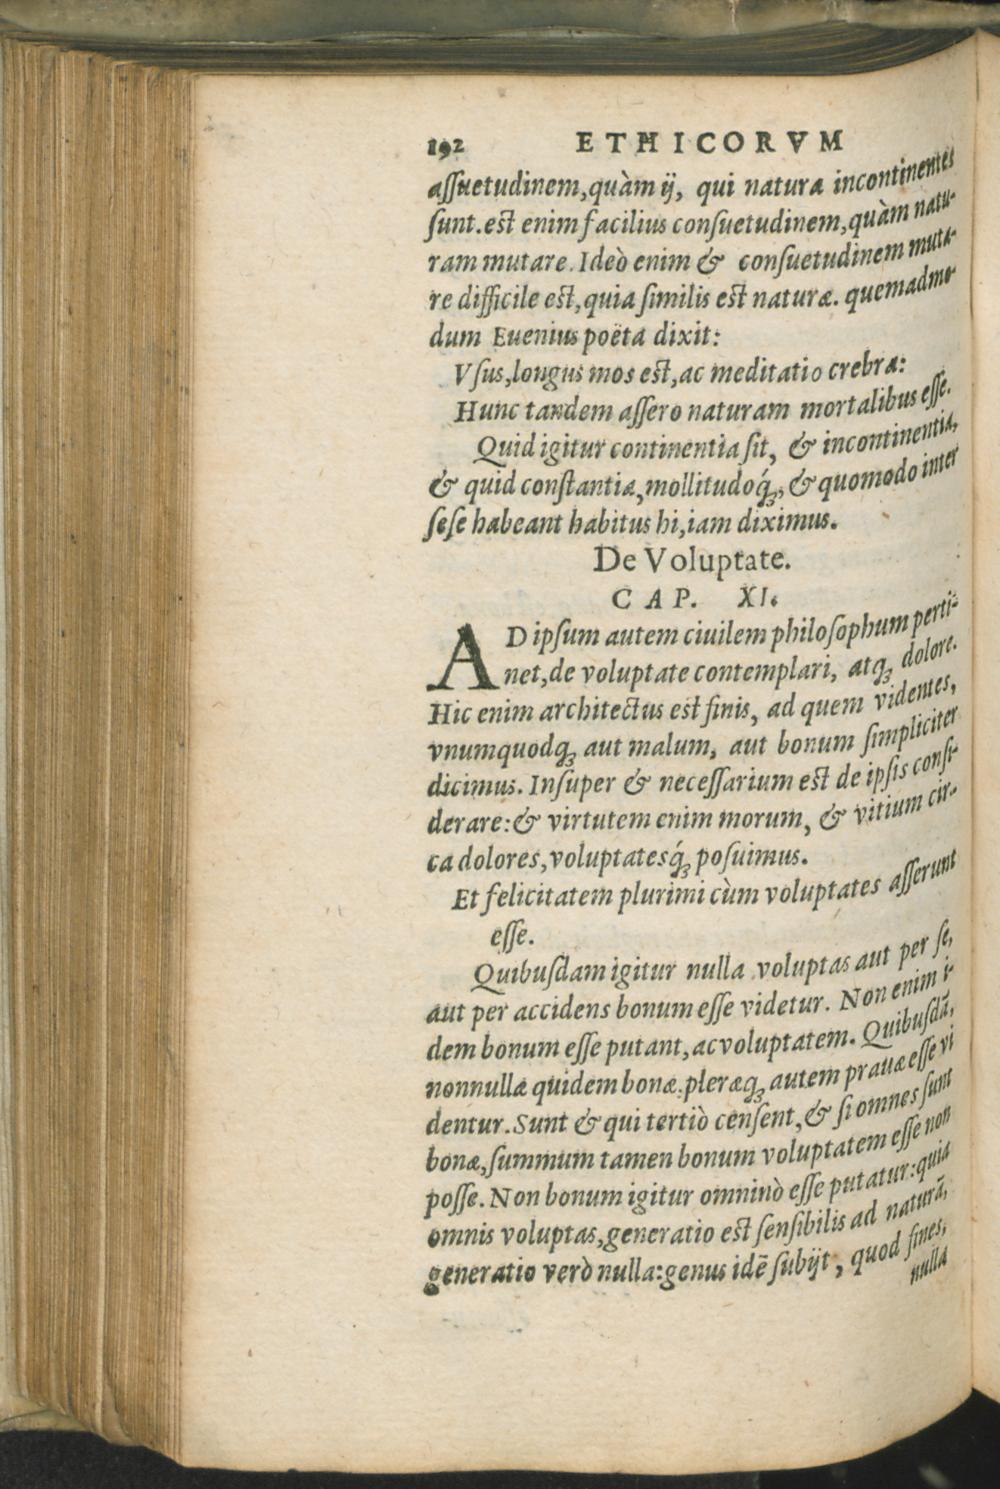 192 ETHICORVM
assuetudinem, quàm ij, qui natura incontinentes
sunt. est enim facilius consuetudinem, quàm natu-
ram mutare. Ideò enim & consuetudinem muta-
re difficile est, quia similis est naturæ. quemadmo
dum Euenius poëta dixit:
Vsus, longus mos est, ac meditatio crebra:
Hunc tandem assero naturam mortalibus esse.
Quid igitur continentia sit, & incontinentia,
& quid constantia, mollitudoq́;, & quomodo inter
sese habeant habitus hi, iam diximus.
De Voluptate.
CAP. XI.
AD ipsum autem ciuilem philosophum perti-
net, de voluptate contemplari, atq; dolore.
Hic enim architectus est finis, ad quem videntes,
vnumquodq; aut malum, aut bonum simpliciter
dicimus. Insuper & necessarium est de ipsis consi-
derare: & virtutem enim morum, & vitium cir-
ca dolores, voluptatesq́; posuimus.
Et felicitatem plurimi cùm voluptates asserunt
esse.
Quibusdam igitur nulla voluptas aut per se,
aut per accidens bonum esse videtur. Non enim i-
dem bonum esse putant, ac voluptatem. Quibusdã,
nonnullæ quidem bonæ. pleræq; autem prauæ esse vi
dentur. Sunt & qui tertiò censent, & si omnes sunt
bonæ, summum tamen bonum voluptatem esse non
posse. Non bonum igitur omninò esse putatur: quia
omnis voluptas, generatio est sensibilis ad naturã,
generatio verò nulla: genus idẽ subijt, quod fines,
nulla